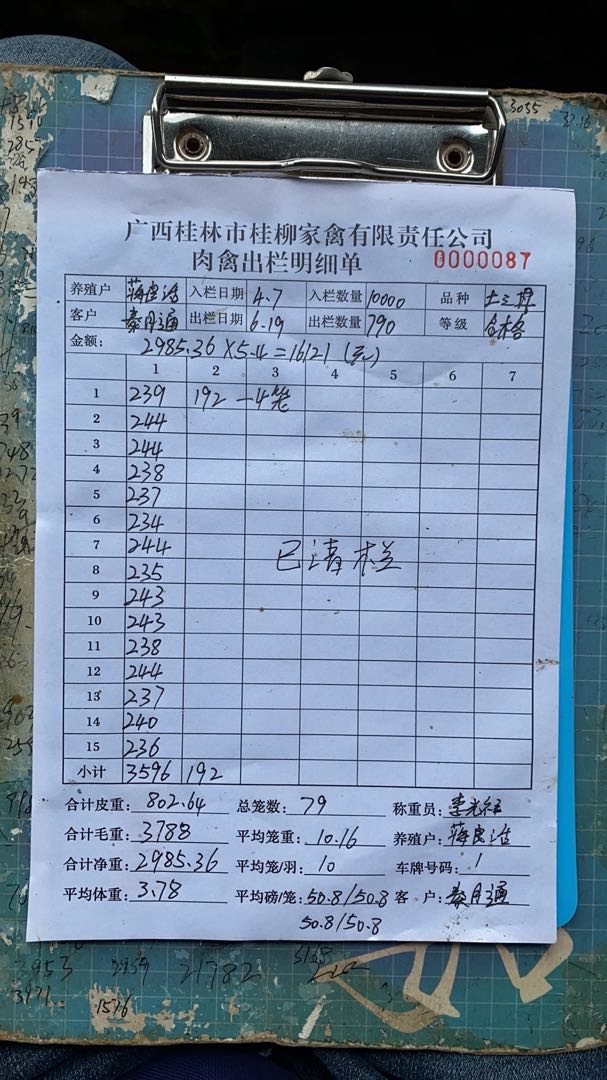 3055
广西桂林市桂柳家禽有限责任公司
肉禽出栏明细单 0000087
养殖户 蒋良浩 入栏日期 4.7 入栏数量 10000 品种
客户 秦月通 出栏日期 6.19 出栏数量 790 等级 合格
金额: 2985.36×5.4=16121(元)
1 2 3 4 5 6 7
1 239 192 —4笼
2 244
3 244
4 238
5 237
6 234
7 244 已清栏
8 235
9 243
10 243
11 238
12 244
13 237
14 240
15 236
小计 3596 192
合计皮重: 802.64 总笼数: 79 称重员:
合计毛重: 3788 平均笼重: 10.16 养殖户: 蒋良浩
合计净重: 2985.36 平均笼/羽: 10 车牌号码: 1
平均体重: 3.78 平均磅/笼: 50.8/50.8 客 户: 秦月通
50.8/50.8
3953 2959 21782
3971
1576